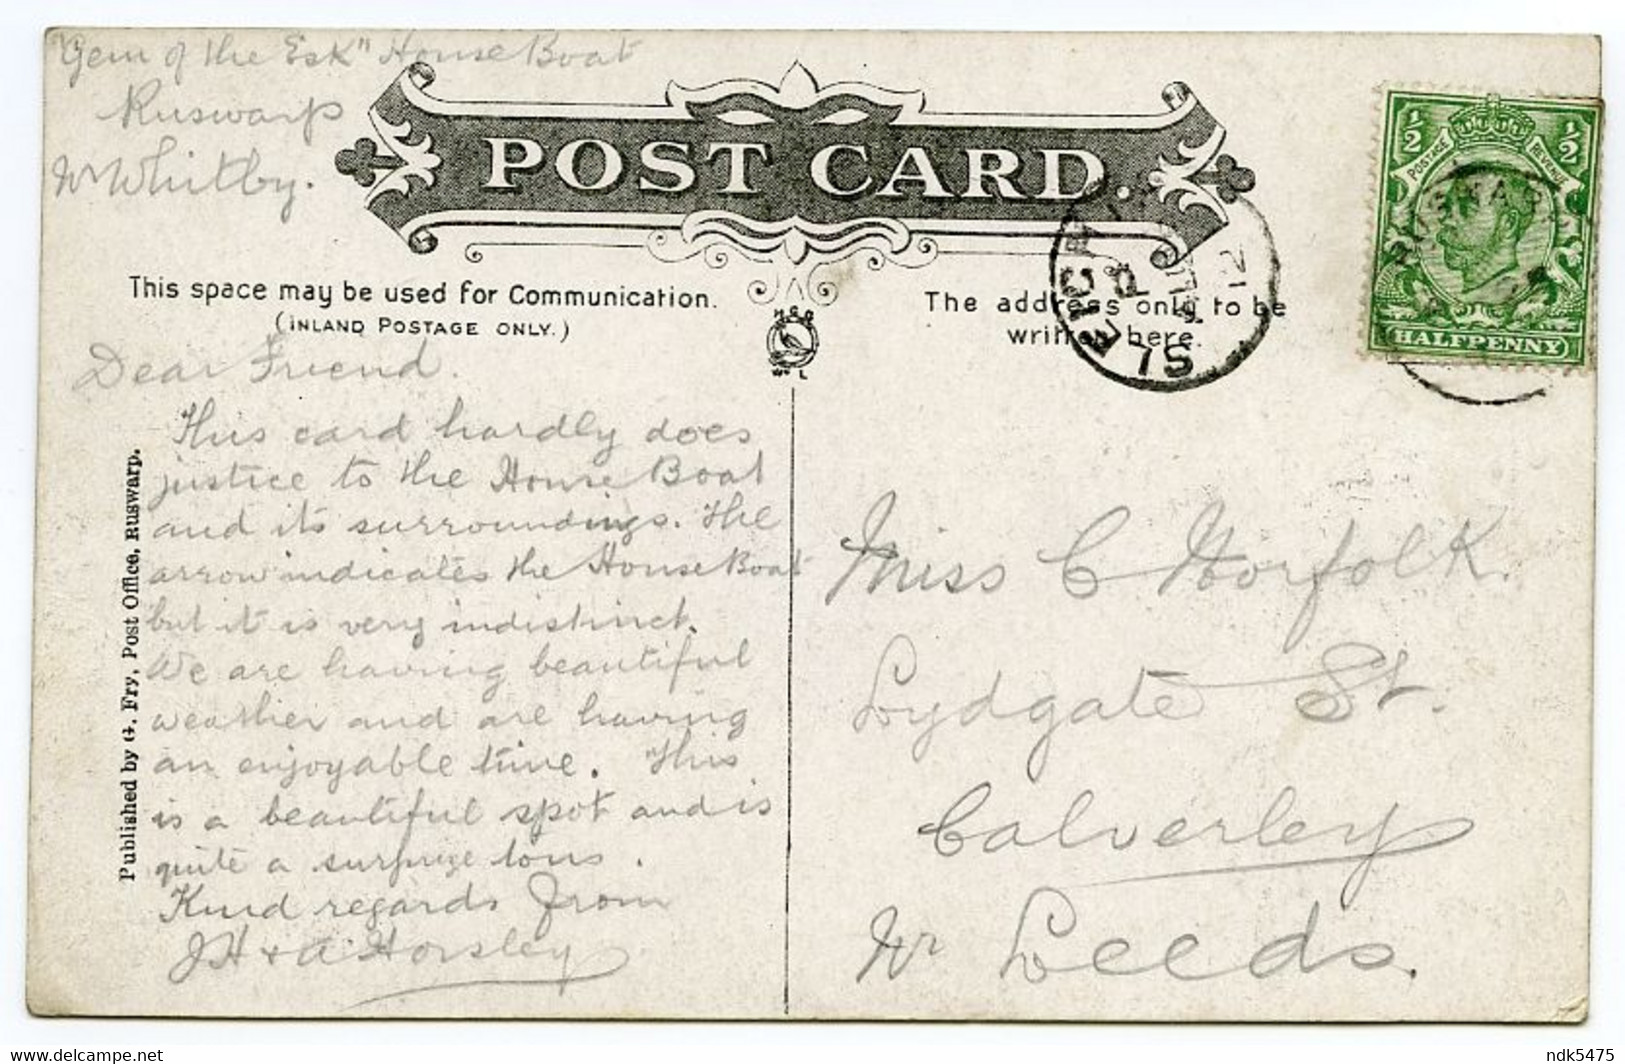 "Gem of the Esk" House Boat
Ruswarp
Nr Whitby.
POST CARD.
This space may be used for Communication.
(INLAND POSTAGE ONLY.)
The address only to be
written here.
½ ½
POSTAGE REVENUE
HALFPENNY
RUSWARP
SLEIGHTS
12
Dear Friend.
This card hardly does
justice to the House Boat
and its surroundings. The
arrow indicates the House Boat
but it is very indistinct.
We are having beautiful
weather and are having
an enjoyable time. This
is a beautiful spot and is
quite a surprize to us.
Kind regards from
JH & A Horsley
Published by G. Fry, Post Office, Ruswarp.
Miss C Norfolk.
Lydgate St.
Calverley
Nr Leeds.
www.delcampe.net
ndk5475